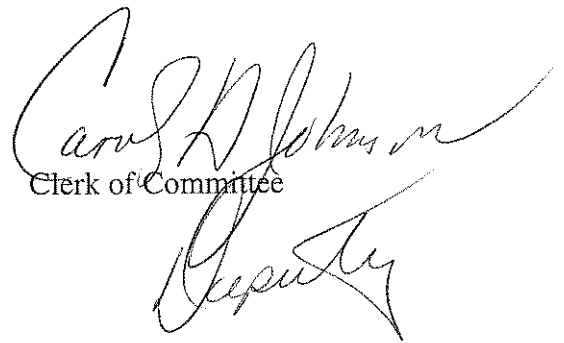 Carol D Johnson
Clerk of Committee
Deputy